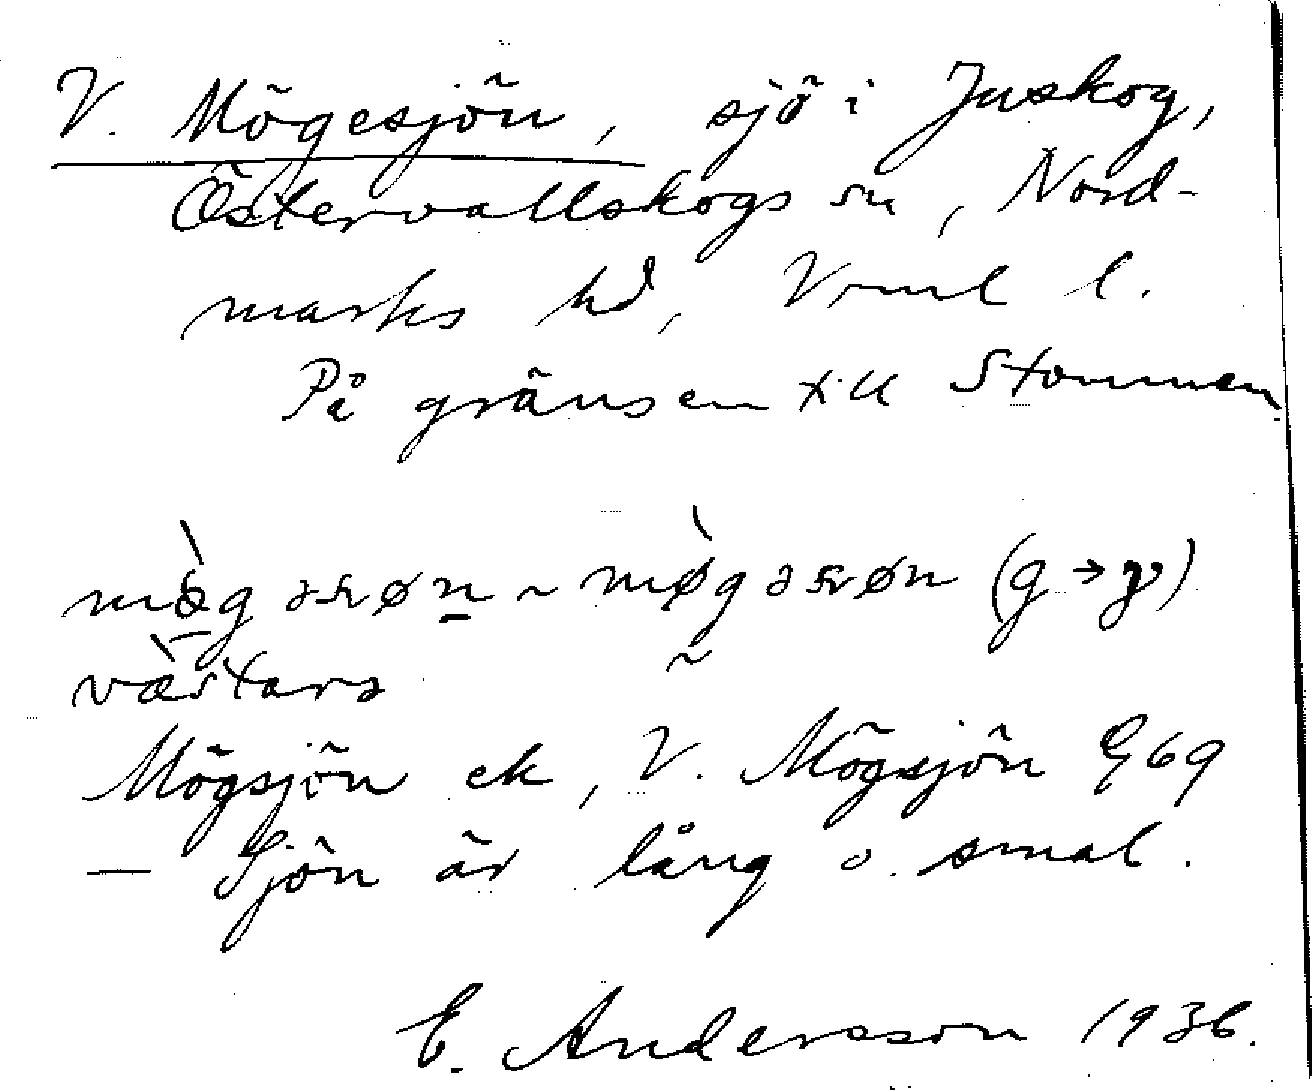 V. Mögesjön, sjö i Juskog,
Östervallskogs sn, Nord-
marks hd, Vrml l.
På gränsen till Stommen
(g → γ)
västara
Mögsjön ek, V. Mögsjön G 69
— Sjön är lång o. smal.
E. Andersson 1936.